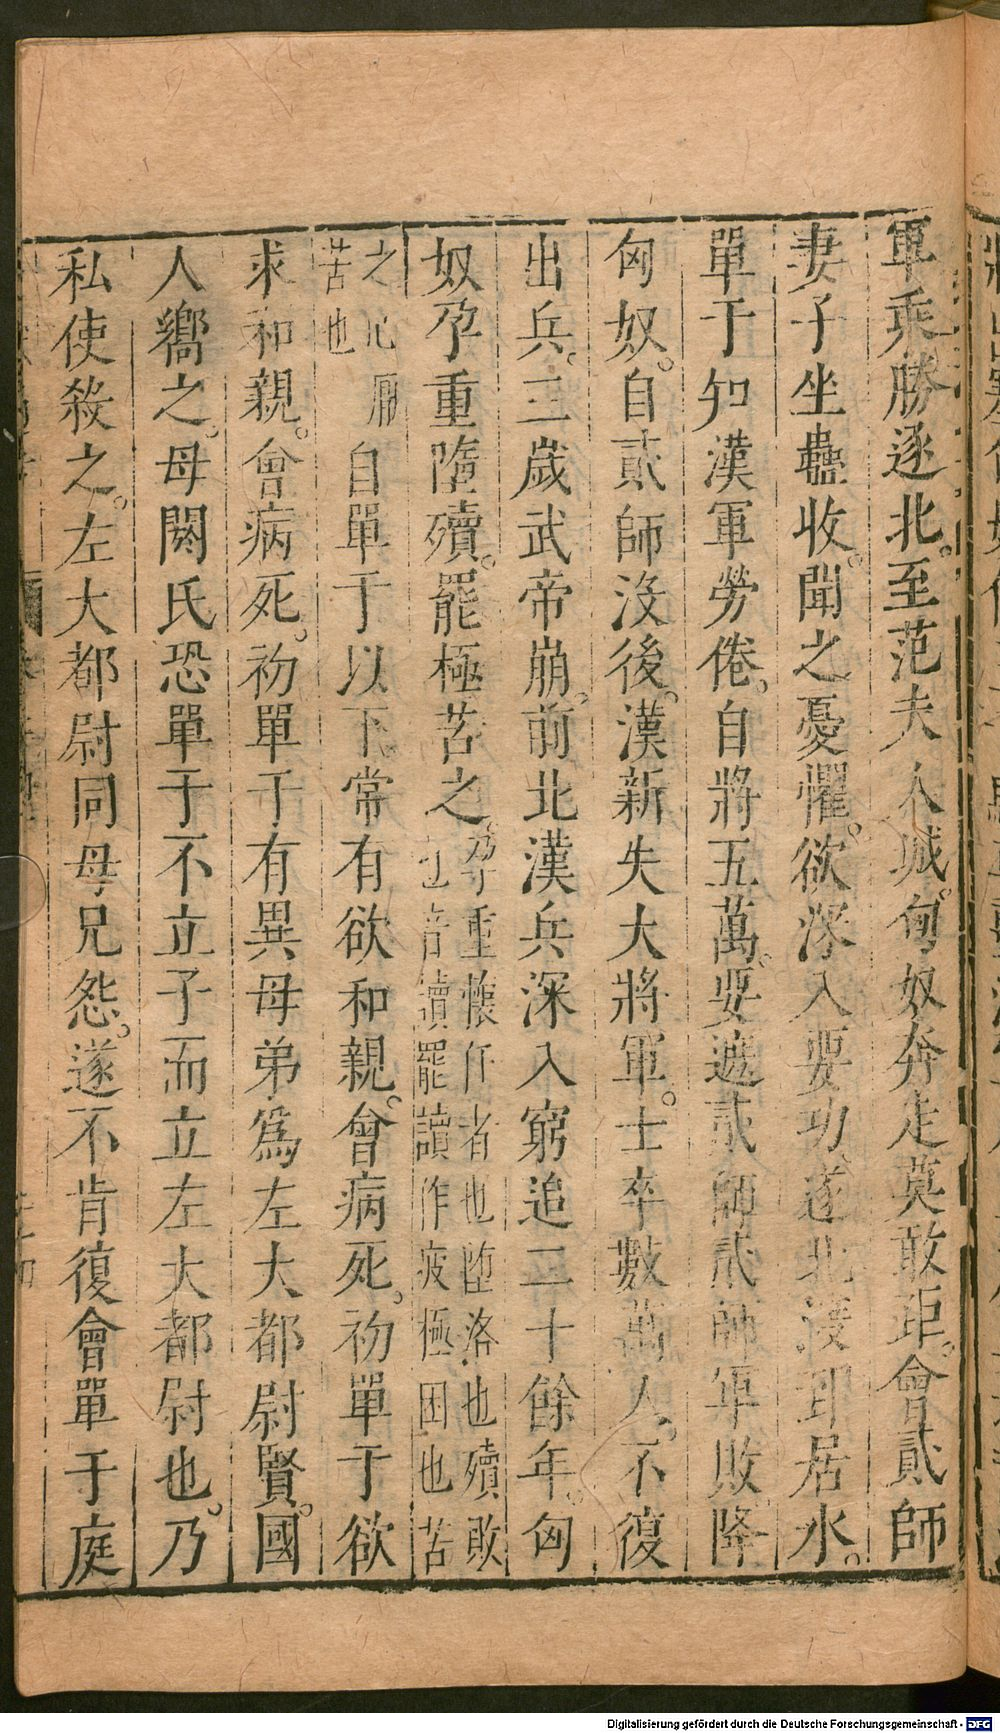 軍乘勝逐北。至范夫人城。匈奴奔走莫敢距。會貳師
妻子坐蠱收。聞之憂懼。欲深入要功遂北湊郅居水。
單于知漢軍勞倦。自將五萬。要遮貳師貳師軍敗降
匈奴。自貳師沒後。漢新失大將軍。士卒數萬人。不復
出兵。三歲武帝崩。前北漢兵深入窮追二十餘年。匈
奴孕重墮殰。罷極苦之。孕重懷任者也墮落也殰敗也音讀罷讀作疲極困也苦
之心厭苦也自單于以下常有欲和親。會病死。初單于欲
求和親。會病死。初單于有異母弟爲左大都尉賢。國
人嚮之。母閼氏恐單于不立子而立左大都尉也。乃
私使殺之。左大都尉同母兄怨。遂不肯復會單于庭
Digitalisierung gefördert durch die Deutsche Forschungsgemeinschaft - DFG